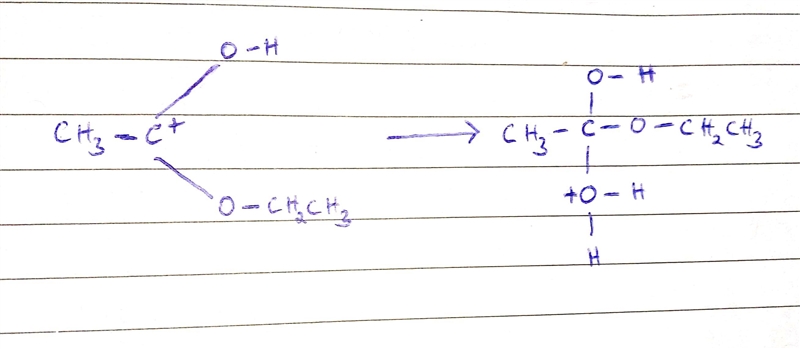 O-H
CH₃-C+
O-CH₂CH₃
→
O-H
CH₃-C-O-CH₂CH₃
+O-H
H